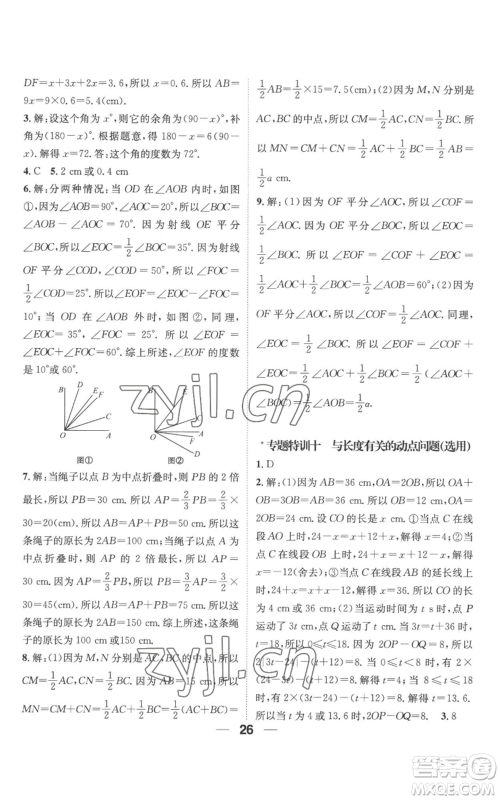 DF=x+3x+2x=3.6，所以 x=0.6. 所以 AB=
9x=9×0.6=5.4(cm).
3. 解：设这个角为 x°，则它的余角为(90-x)°，补
角为(180-x)°. 根据题意，得 180-x=6(90-
x). 解得 x=72. 答：这个角的度数为 72°.
4. C　5. 2 cm或0.4 cm
6. 解：分两种情况：当 OD 在∠AOB 内时，如图
①，因为∠AOB=90°，∠AOC=20°，所以
∠BOC=∠AOB-∠AOC=70°. 因为射线 OE 平分
∠BOC，所以∠EOC=1/2∠BOC=35°. 因为射线
OF 平分∠COD，∠COD=50°，所以∠FOC=
1/2∠COD=25°. 所以∠EOF=∠EOC-∠FOC=
10°；当 OD 在∠AOB外时，如图②，同理，
∠EOF=∠EOC+∠FOC=1/2∠BOC+
1/2∠COD=60°. 综上所述，∠EOF 的度数
是 10°或60°.
B D E F C O A
图①
B E C A F D O
图②
7. 解：当绳子以点 B 为中点折叠时，PB 的 2 倍
最长，所以 PB=30 cm. 所以 AP=2/3PB=2/3×
30=20(cm). 所以 AB=AP+PB=50 cm. 所以这
条绳子的原长为 2AB=100 cm；当绳子以点 A 为
中点折叠时，所以 AP 的 2 倍最长，所以 AP
=30 cm. 因为 AP=2/3PB，所以 PB=3/2AP=3/2×
30=45(cm). 所以 AB=AP+PB=75 cm. 所以这
条绳子的原长为 2AB=150 cm. 综上所述，这条
绳子的原长为 100 cm或150 cm.
8. 解：(1)因为 M，N 分别是 AC，BC 的中点，所以
CM=1/2AC，CN=1/2BC. 因为 AB=15 cm，所以
MN=CM+CN=1/2AC+1/2BC=1/2(AC+BC)=
1/2AB=1/2×15=7.5(cm)；(2)因为 M，N 分别是
AC，BC 的中点，所以 CM=1/2AC，CN=1/2BC. 所
以 MN=CM+CN=1/2AC+1/2BC=1/2AB=
1/2a cm.
9. 解：(1)因为 OF 平分∠AOC，所以∠COF=
1/2∠AOC. 因为 OE 平分∠BOC，所以∠EOC=
1/2∠BOC. 所以∠EOF=∠EOC+∠COF=
1/2∠AOC+1/2∠BOC=1/2∠AOB=60°；(2)因为
OF 平分∠AOC，所以∠COF=1/2∠AOC. 同理，
∠EOC=1/2∠BOC. 所以∠EOF=∠COF+
∠EOC=1/2∠AOC+1/2∠BOC=1/2(∠AOC+
∠BOC)=1/2∠AOB=1/2a.
*专题特训十　与长度有关的动点问题(选用)
1. D
2. 解：(1)因为 AB=36 cm，OA=2OB，所以 OA
+OB=3OB=AB=36 cm. 所以 OB=12 cm，OA
=24 cm；(2)设 CO 的长是 x cm. ①当点 C 在线
段 AO 上时，24-x=x+12+x. 解得 x=4；②当点
C 在线段 OB 上时，24+x=12-x+x. 解得
x=-12(舍去)；③当点 C 在线段 AB 的延长线上
时，24+x=x-12+x. 解得 x=36. 所以 CO 的长
为 4 cm或36 cm；(3)当运动时间为 t s 时，点 P
运动了 3t cm，点 Q 运动了 t cm. 因为 0≤3t≤36
+18，所以 0≤t≤18. 因为 2OP-OQ=8，所以
2|3t-24|-(t+12)=8. 当 0≤t<8 时，2(24-
3t)-(t+12)=8. 解得 t=4；当 8≤t≤18 时，
2(3t-24)-(t+12)=8. 解得 t=13.6.
所以当 t 为4或13.6时，2OP-OQ=8.　3. 8
26
zyjl.cn
zyjl.cn
答案圈
MXQE.COM